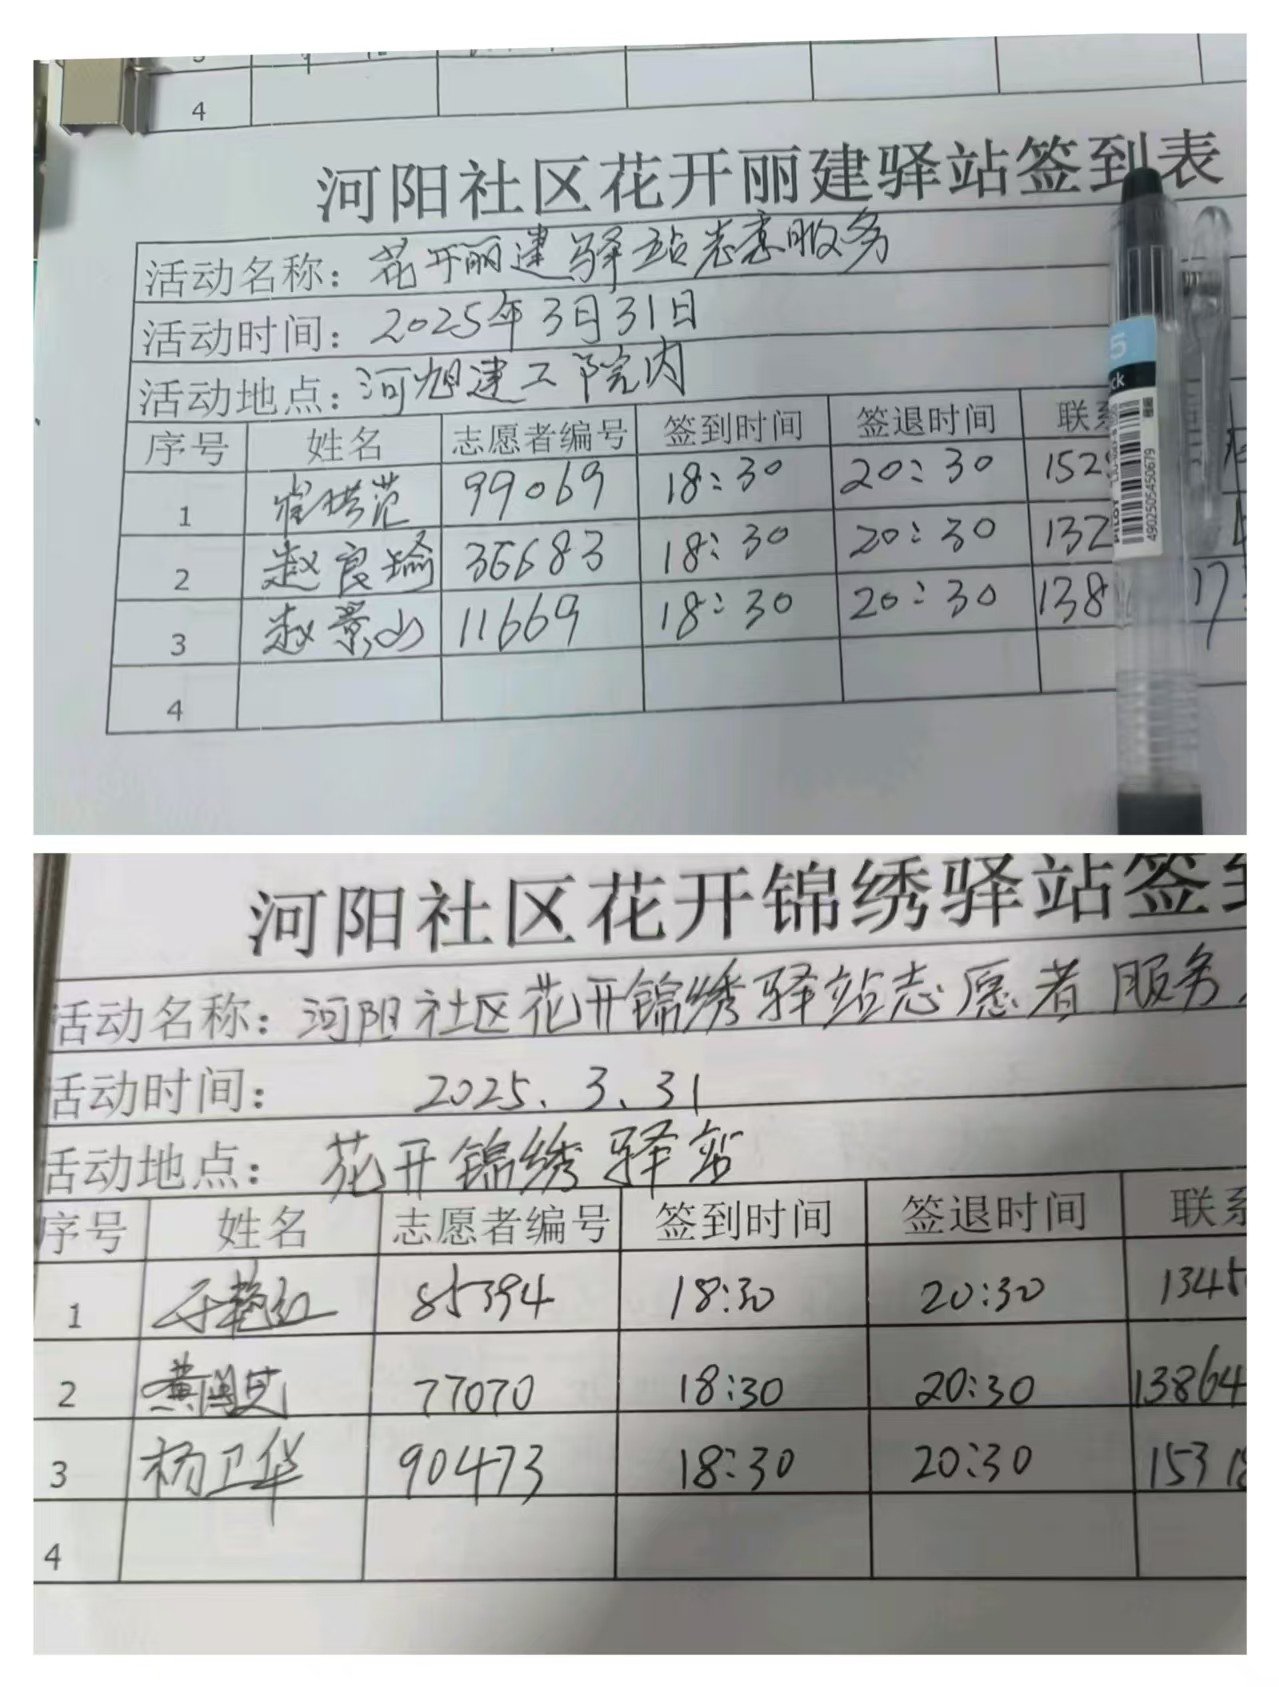 4
河阳社区花开丽建驿站签到表
活动名称：花开丽建驿站志愿服务
活动时间：2025年3月31日
活动地点：河旭建工院内
序号 姓名 志愿者编号 签到时间 签退时间 联系
1 崔洪范 99069 18:30 20:30 152
2 赵良瑜 36683 18:30 20:30 132
3 赵景山 11669 18:30 20:30 138 17
4
5
ck
4902505450679
河阳社区花开锦绣驿站签到
活动名称：河阳社区花开锦绣驿站志愿者服务
活动时间： 2025.3.31
活动地点： 花开锦绣驿站
序号 姓名 志愿者编号 签到时间 签退时间 联系
1 于艳红 85394 18:30 20:30 1345
2 黄闰芝 77070 18:30 20:30 13864
3 杨卫华 90473 18:30 20:30 15318
4